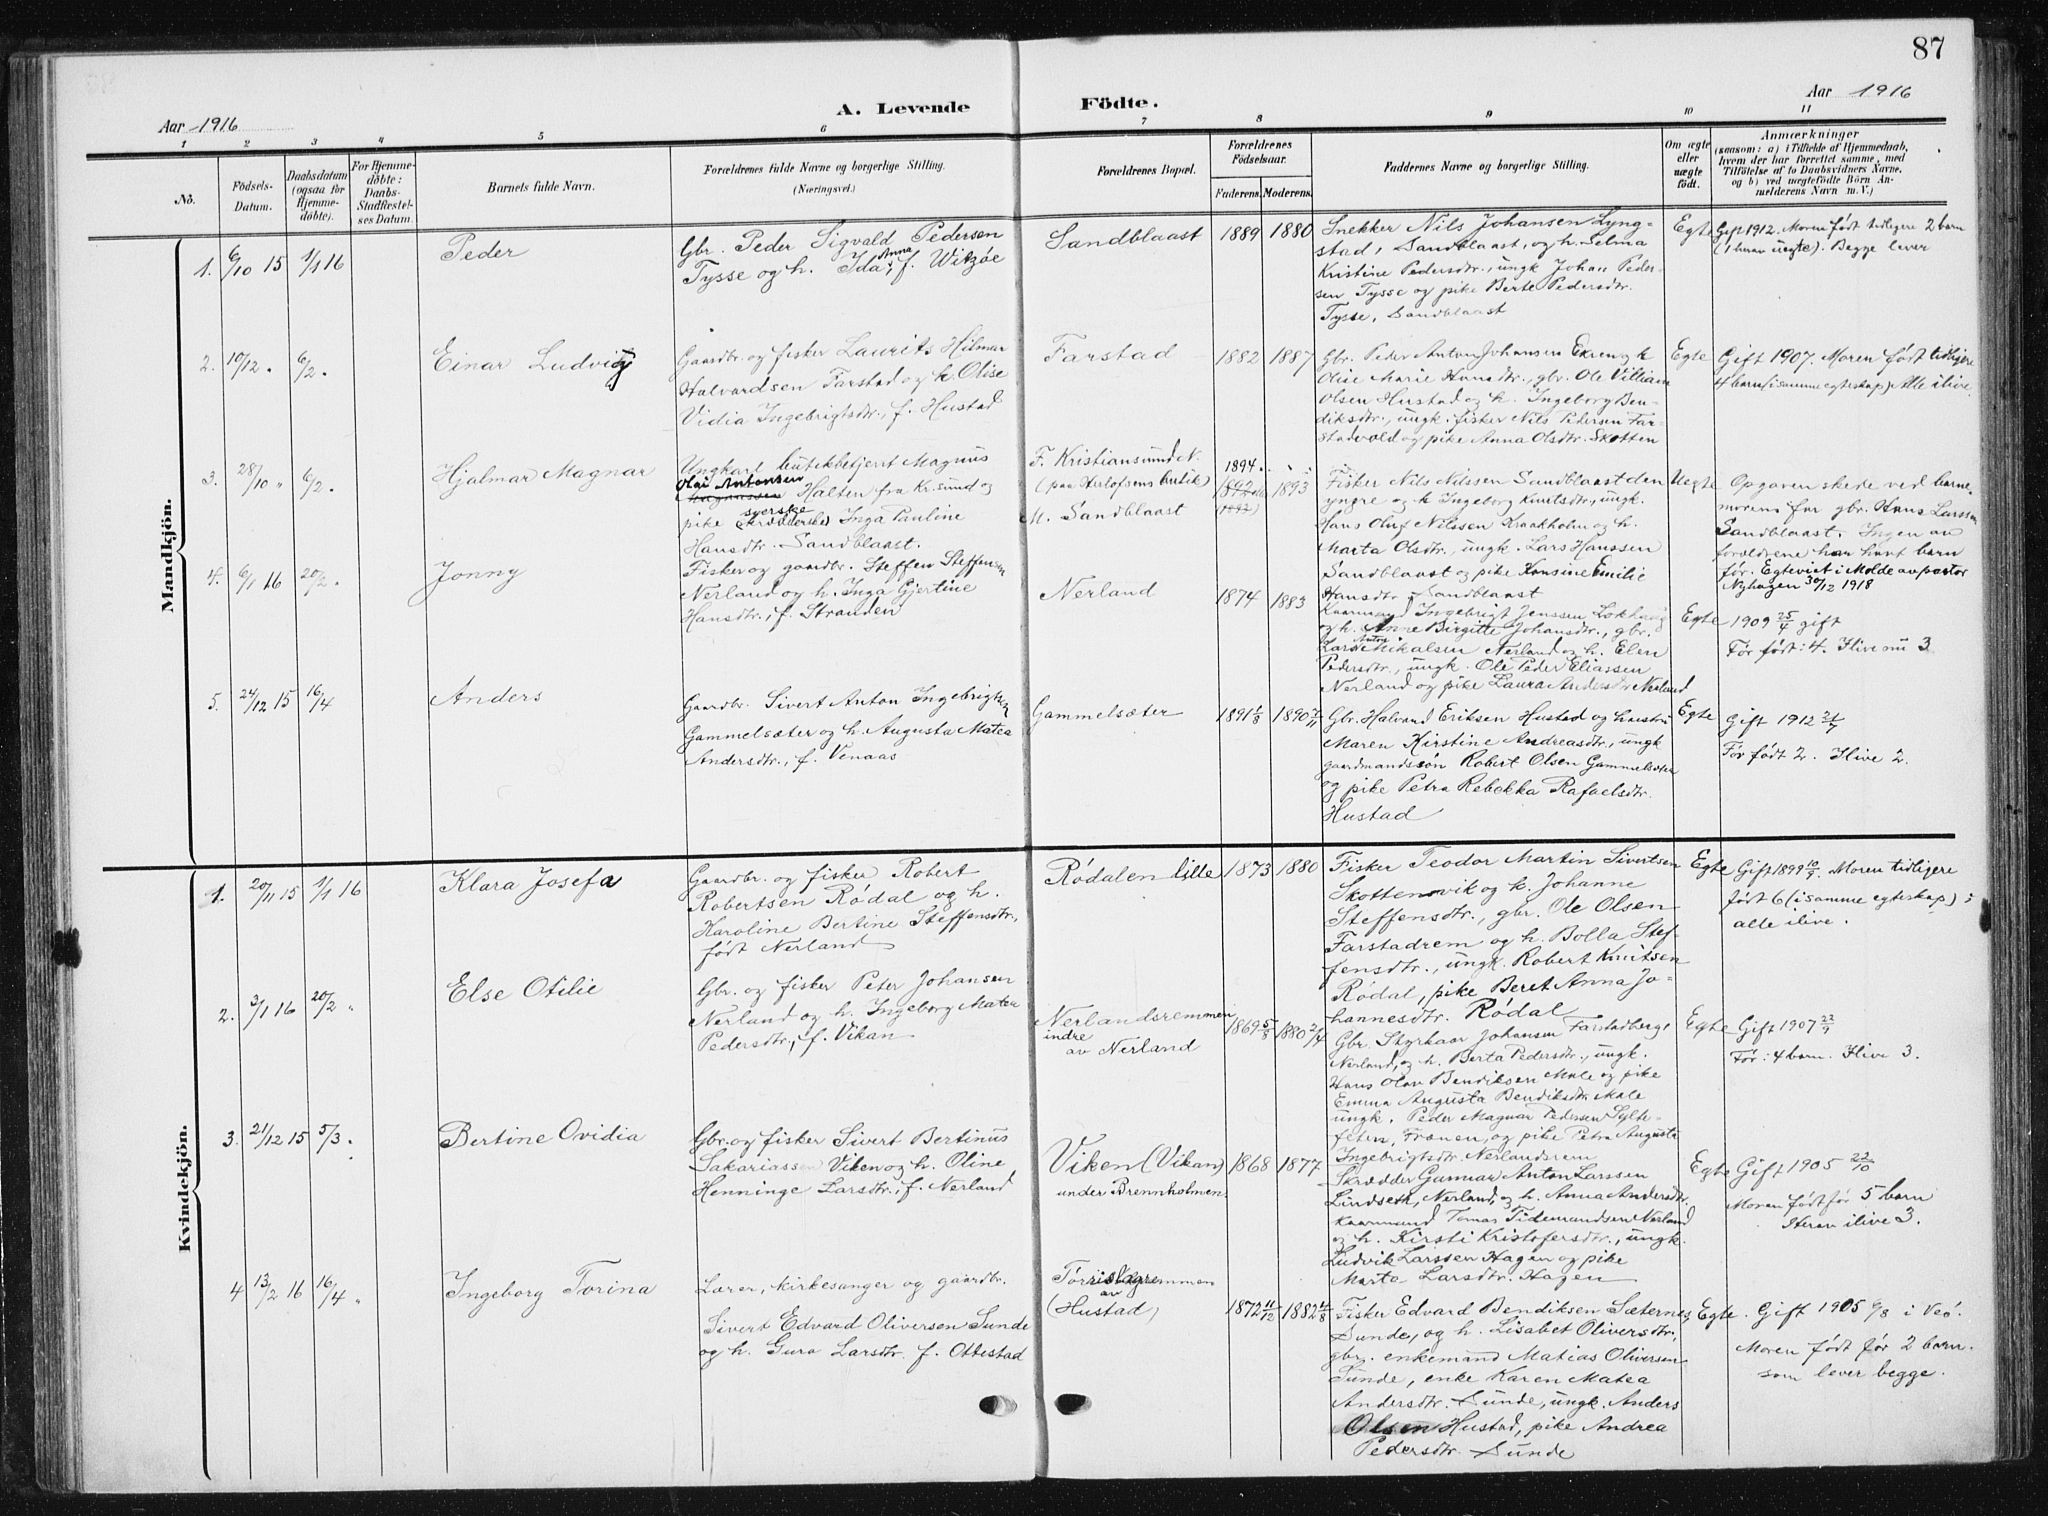 87
A. Levende Födte.
Aar 1916
Aar 1916
1 2 3 4 5 6 7 8 9 10 11
No.
Födsels-Datum.
Daabsdatum (ogsaa for Hjemme-døbte).
For Hjemme-døbte: Daabs-Stadfæstel-ses Datum.
Barnets fulde Navn.
Forældrenes fulde Navne og borgerlige Stilling.
(Næringsvei.)
Forældrenes Bopæl.
Forældrenes Födselsaar.
Faderens. Moderens.
Faddernes Navne og borgerlige Stilling.
Om ægte eller uægte født.
Anmærkninger
(saasom: a) i Tilfælde af Hjemmedaab, hvem der har forrettet samme, med Tilføielse af to Daabsvidners Navne, og b) ved uægtefödte Börn An-melderens Navn m. V.)
Mandkjön.
1. 6/10 15 1/1 16 Peder
Gbr. Peder Sigvald Pedersen
Tysse og h. Ida Anna, f. Witzøe
Sandblaast 1889 1880
Snekker Nils Johansen Lyng-
stad, Sandblaast, og h. Selma
Kristine Pedersdtr., ungk Johan Peder-
sen Tysse og pike Berte Pedersdtr.
Tysse, Sandblaast
Egte
Gift 1912. Moren født tidligere 2 barn
(1 barn uegte). Begge lever
2. 10/12 " 6/2 " Einar Ludvig
Gaardbr. og fisker Laurits Hilmar
Halvardsen Farstad og h. Olise
Vidia Ingebrigtsdtr., f. Hustad
Farstad 1882 1887
Gbr. Peder Anton Johansen Exren og h
Oline Marie Hansdtr., gbr. Ole Villiam
Olsen Hustad og h. Ingeborg Ben-
diksdtr., ungk. fisker Nils Petersen Far-
stadvold og pike Anna Olsdtr. Skotten
Egte
Gift 1907. Moren født tidligere
4 barn (i samme egteskap) Alle ilive.
3. 28/10 " 6/2 " Hjalmar Magnar
Ungkarl butikbetjent Magnus
Olai Antonsen
Halten fra Kr.sund og
pike syerske Inga Pauline
Hansdtr. Sandblaast.
F. Kristiansund N.
(paa Herlofsens butik)
M. Sandblaast
1894
1892 1893
Fisker Nils Nilssen Sandblaast den
yngre og h Ingeborg Knutsdtr., ungk.
Hans Oluf Nilssen Kraakholm og h.
Marta Olsdtr., ungk. Lars Hanssen
Sandblaast og pike Hansine Emilie
Hansdtr. Sandblaast
Uegte
Opgaven skede ved barne-
morens far gbr. Hans Larssen
Sandblaast. Ingen av
forældrene har havt barn
før. Egteviet i Molde av pastor
Nyhagen 30/12 1918
4. 6/1 16 20/2 " Jonny
Fisker og gaardbr. Steffen Steffensen
Nerland og h. Inga Gjertine
Hansdtr., f. Stranden
Nerland 1874 1883
Kaarmand Ingebrigt Jenssen Lokhaug
og h. Anne Birgitte Johansdtr., gbr.
Lars Anton Mikalsen Nerland og h. Elen
Pedersdtr., ungk. Ole Peder Eliassen
Nerland og pike Laura Andersdtr Nerland
Egte
1909 25/4 gift
Før født: 4. Ilive nu 3
5. 24/12 15 16/4 Anders
Gaardbr. Sivert Anton Ingebrigtsen
Gammelsæter og h. Augusta Matea
Andersdtr., f. Venaas
Gammelsæter 1891 1/8 1890 7/11
Gbr. Halvard Eriksen Hustad og hustru
Maren Kirstine Andreasdtr., ungk
gaardmandssøn Robert Olsen Gammelsæter
og pike Petra Rebekka Rafaelsdtr.
Hustad
Egte
Gift 1912 21/7
Før født 2. Ilive 2.
Kvindekjön.
1. 20/11 15 1/1 16 Klara Josefa
Gaardbr. og fisker Robert
Robertsen Rødal og h.
Karoline Bertine Steffensdtr,
født Nerland
Rødalen lille 1873 1880
Fisker Teodor Martin Sivertsen
Skottenvik og h. Johanne
Steffensdtr., gbr. Ole Olsen
Farstadrem og h. Bolla Stef-
fensdtr., ungk. Robert Knutsen
Rødal, pike Beret Anna Jo-
hannesdtr. Rødal
Egte
Gift 1899 10/9. Moren tidligere
født 6 (i samme egteskap) :
alle ilive.
2. 3/1 16 20/2 " Else Otilie
Gbr. og fisker Peter Johansen
Nerland og h. Ingeborg Matea
Pedersdtr., f. Vikan
Nerlandsremmen
indre
av Nerland
1869 5/8 1880 2/4
Gbr. Styrkaar Johansen Farstadberge
Nerland, og h. Berta Pedersdtr., ungk.
Hans Olav Bendiksen Male og pike
Emma Augusta Bendiksdtr Male
ungk. Peder Magnar Pedersen Sylte-
feten, Frænen, og pike Petra Augusta
Ingebrigtsdtr. Nerlandsrem
Egte
Gift 1907 22/9
Før: 4 barn. Ilive 3.
3. 21/12 15 5/3 " Bertine Ovidia
Gbr. og fisker Sivert Bertinus
Sakariassen Viken og h. Oline
Henninge Larsdtr., f. Nerland
Viken (Vikan)
under Brennholmen
1868 1877
Skrædder Gunnar Anton Larssen
Lindseth, Nerland, og h. Anna Andersdtr.
kaarmand Tomas Tidemandsen Nerland
og h. Kirsti Kristofersdtr., ungk.
Ludvik Larssen Hagen og pike
Marta Larsdtr. Hagen
Egte
Gift 1905 22/10
Moren født før 5 barn
Herav ilive 3.
4 13/2 16 16/4 " Ingeborg Torina
Lærer, kirkesanger og gaardbr.
Sivert Edvard Oliversen Sunde
og h. Guro Larsdtr. f. Ottestad
av
(Hustad)
1872 11/12 1882 4/8
Fisker Edvard Bendiksen Sæternes
Sunde, og h. Lisabet Oliversdtr.,
gbr. enkemand Matias Oliversen
Sunde, enke Karen Matea
Andersdtr. Sunde, ungk. Anders
Olsen Hustad, pike Andrea
Pedersdtr. Sunde
Egte.
Gift 1905 6/8 i Veö.
Moren født før 2 barn.
som lever begge.